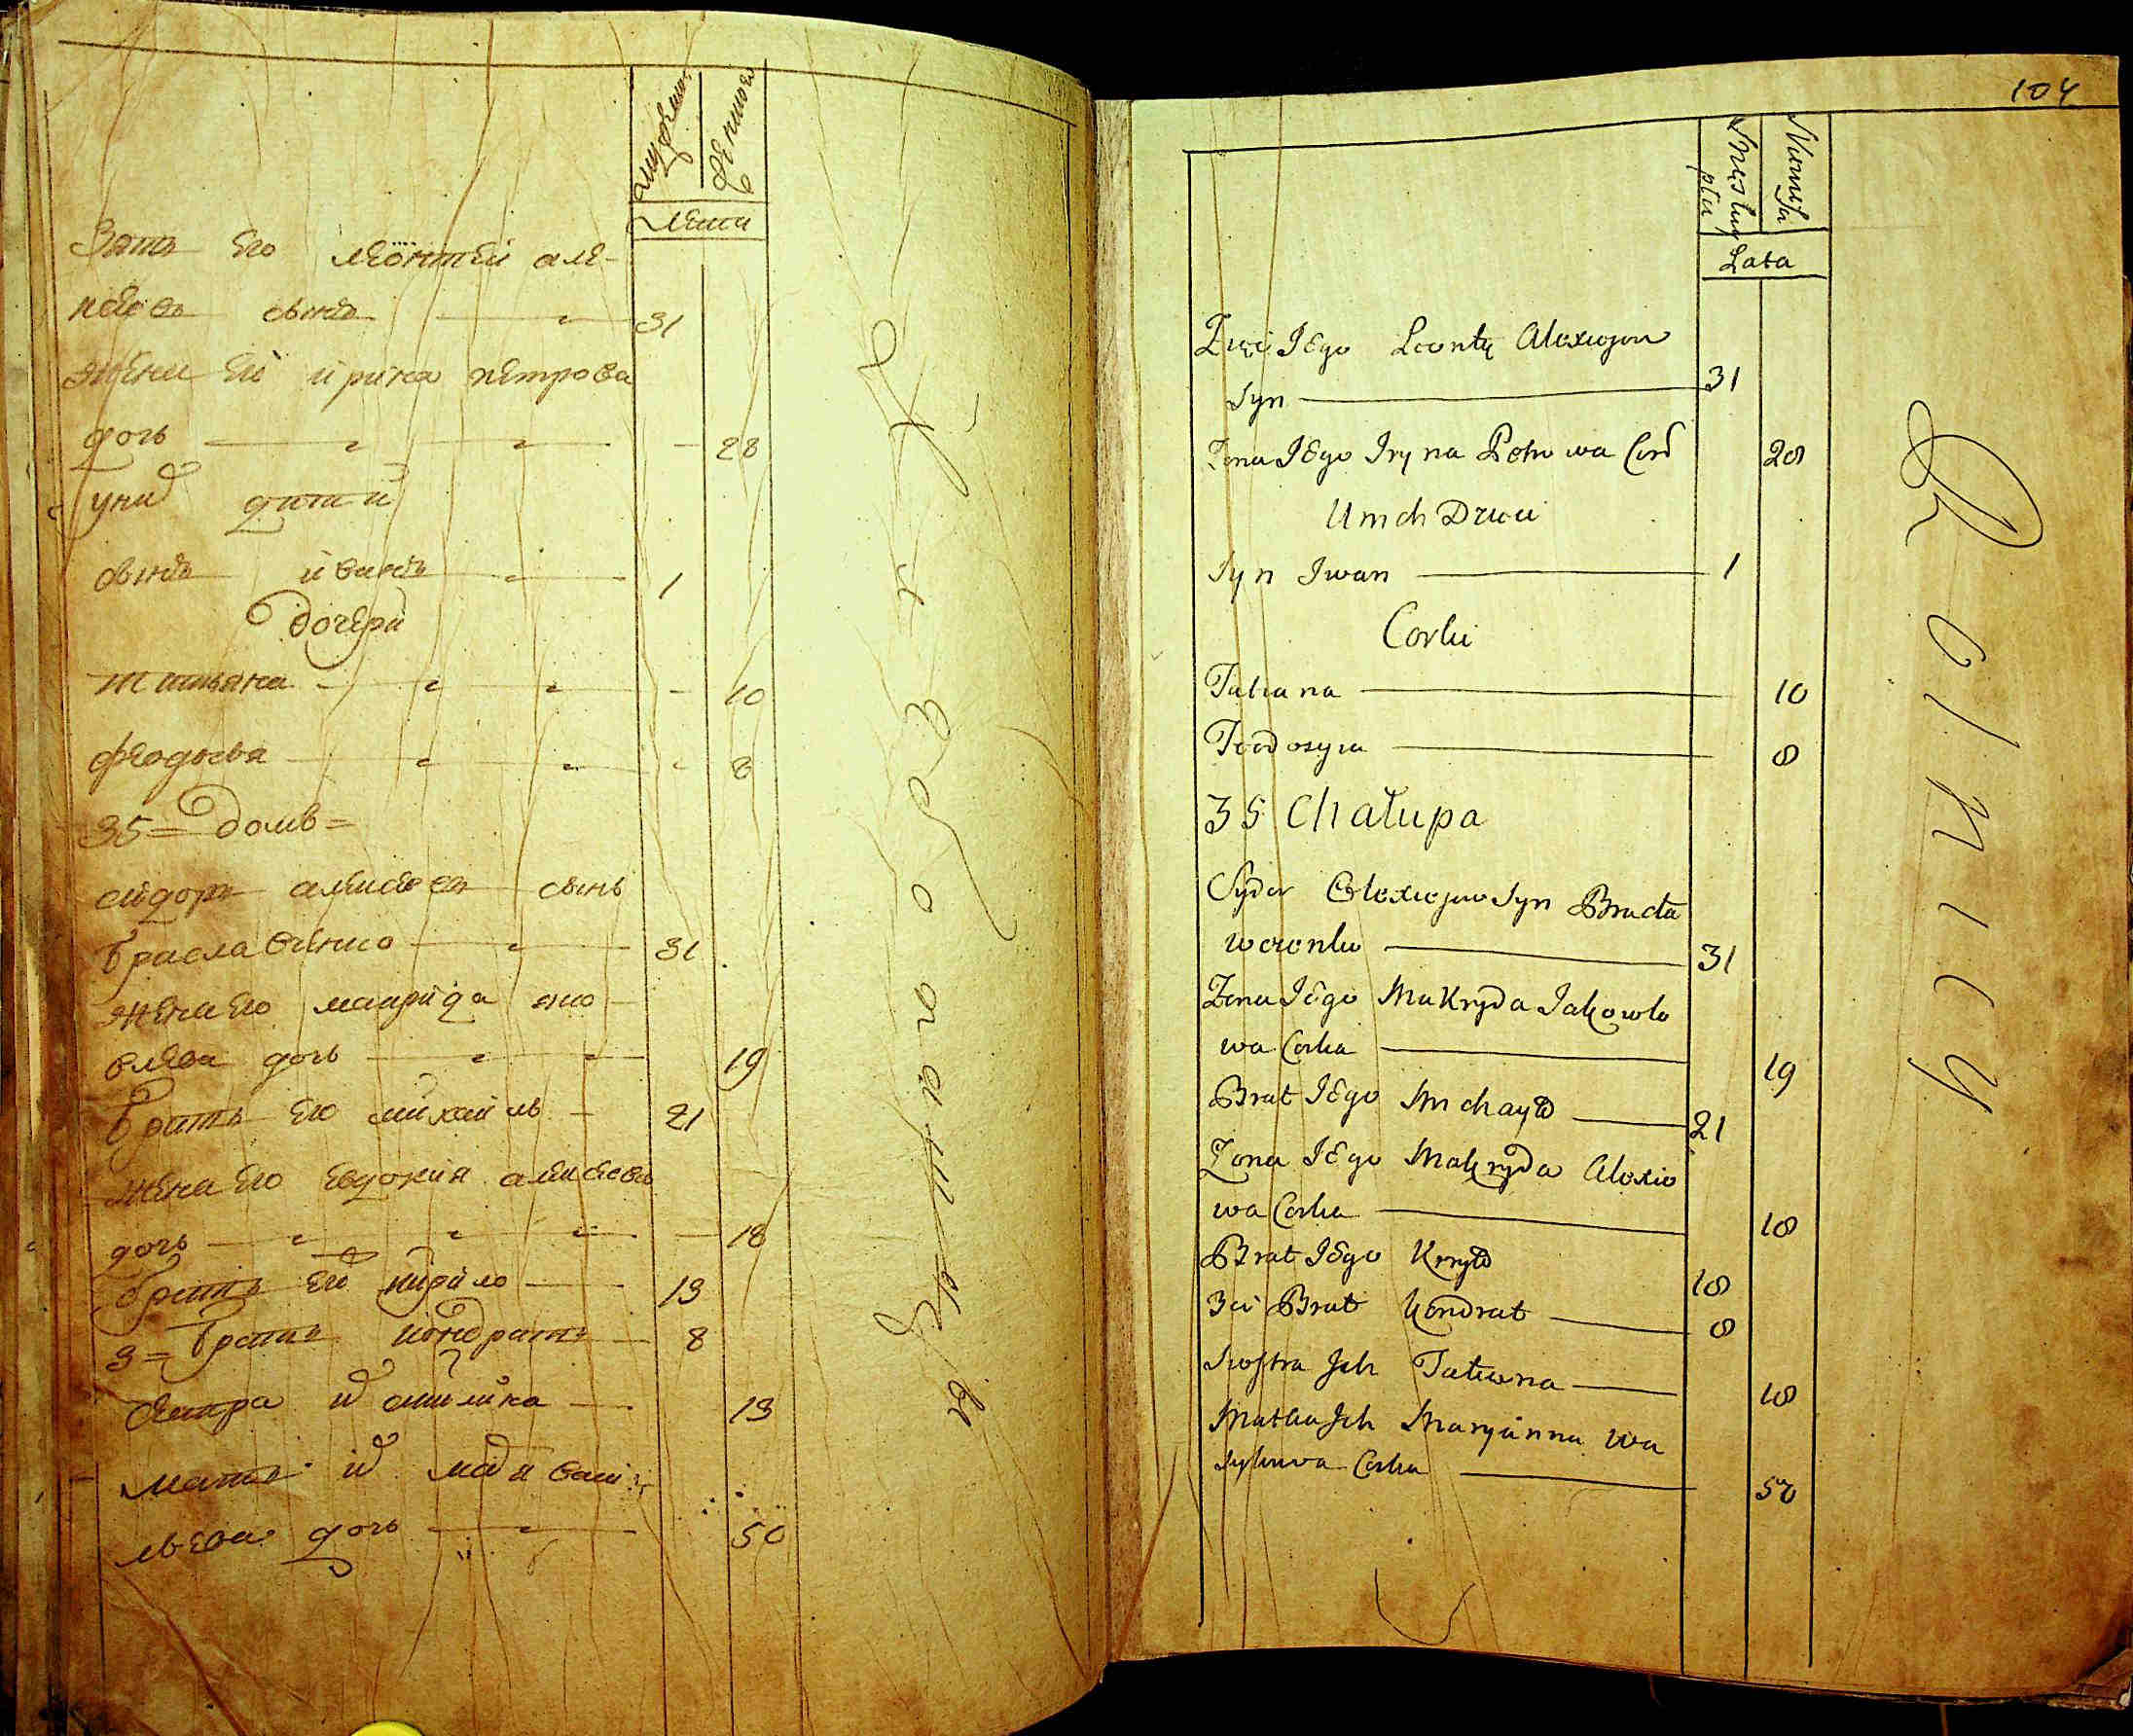 Зять его леонтей але-
ѯѣевъ сынъ 31
жена его ирина петрова
дочь 28
у них дети
сынъ иванъ 1
дочери
татьяна 10
феодосва 8
35 = домъ =
сидоръ алексѣевъ сынъ
браславѣнко 31
жена его макрида яко-
влева дочь 19
братъ его михаилъ 21
жена его евдокия алексѣева
дочь 18
братъ его кирило 13
3 = братъ кондратъ 8
сестра их 13
мать их васи-
льева дочь 50
лета
104
Męska
płci
Lata
Zięć Iego Leonty Alexiejow
Syn 31
Zona Iego Iryna Petrowa Cor 28
U nich Dzieci
Syn Iwan 1
Corki
Tatiana 10
Teodosyia 8
35 Chałupa
Sydor Alexiejow Syn Bracła
werenko 31
Zona Iego Makryda Jakowle
wa Corka 19
Brat Iego Michayło 21
Zona Iego Makryda Alexie
wa Corka 18
Brat Iego Kryło 18
3ci Brat Kondrat 8
Siostra Ich Tatiana 18
Matka Ich Maryanna Wa
sylewa Corka 50
Rolnicy